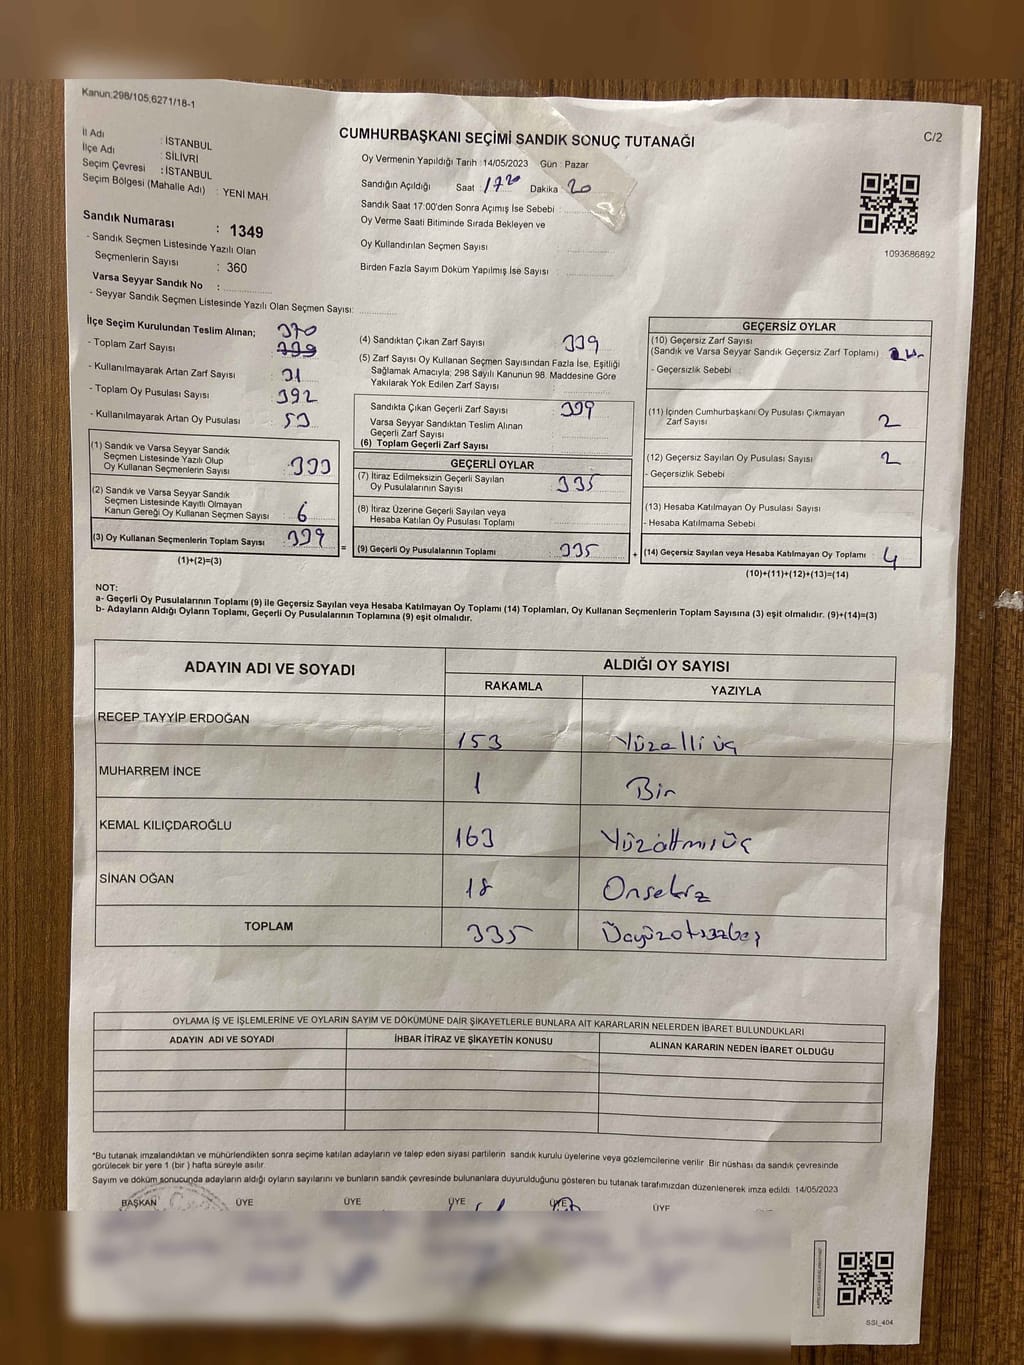 Kanun;298/105,6271/18-1
C/2
CUMHURBAŞKANI SEÇİMİ SANDIK SONUÇ TUTANAĞI
İl Adı : İSTANBUL
İlçe Adı : SİLİVRİ
Seçim Çevresi : İSTANBUL
Seçim Bölgesi (Mahalle Adı) : YENİ MAH
Sandık Numarası : 1349
- Sandık Seçmen Listesinde Yazılı Olan
Seçmenlerin Sayısı : 360
Varsa Seyyar Sandık No :
- Seyyar Sandık Seçmen Listesinde Yazılı Olan Seçmen Sayısı:
Oy Vermenin Yapıldığı Tarih :14/05/2023 Gün : Pazar
Sandığın Açıldığı Saat : 17 20 Dakika 20
Sandık Saat 17:00'den Sonra Açımış İse Sebebi :
Oy Verme Saati Bitiminde Sırada Bekleyen ve
Oy Kullandırılan Seçmen Sayısı
Birden Fazla Sayım Döküm Yapılmış İse Sayısı :
1093686892
İlçe Seçim Kurulundan Teslim Alınan; 370
- Toplam Zarf Sayısı : 339
- Kullanılmayarak Artan Zarf Sayısı : 31
- Toplam Oy Pusulası Sayısı : 392
- Kullanılmayarak Artan Oy Pusulası : 53
(1) Sandık ve Varsa Seyyar Sandık
Seçmen Listesinde Yazılı Olup
Oy Kullanan Seçmenlerin Sayısı : 333
(2) Sandık ve Varsa Seyyar Sandık
Seçmen Listesinde Kayıtlı Olmayan
Kanun Gereği Oy Kullanan Seçmen Sayısı : 6
(3) Oy Kullanan Seçmenlerin Toplam Sayısı : 339
(1)+(2)=(3)
=
(4) Sandıktan Çıkan Zarf Sayısı : 339
(5) Zarf Sayısı Oy Kullanan Seçmen Sayısından Fazla İse, Eşitliği
Sağlamak Amacıyla; 298 Sayılı Kanunun 98. Maddesine Göre
Yakılarak Yok Edilen Zarf Sayısı
Sandıkta Çıkan Geçerli Zarf Sayısı : 339
Varsa Seyyar Sandıktan Teslim Alınan
Geçerli Zarf Sayısı
(6) Toplam Geçerli Zarf Sayısı
GEÇERLİ OYLAR
(7) İtiraz Edilmeksizin Geçerli Sayılan
Oy Pusulalarının Sayısı : 335
(8) İtiraz Üzerine Geçerli Sayılan veya
Hesaba Katılan Oy Pusulası Toplamı
(9) Geçerli Oy Pusulalarının Toplamı : 335
+
GEÇERSİZ OYLAR
(10) Geçersiz Zarf Sayısı
(Sandık ve Varsa Seyyar Sandık Geçersiz Zarf Toplamı)
- Geçersizlik Sebebi :
(11) İçinden Cumhurbaşkanı Oy Pusulası Çıkmayan
Zarf Sayısı 2
(12) Geçersiz Sayılan Oy Pusulası Sayısı : 2
- Geçersizlik Sebebi
(13) Hesaba Katılmayan Oy Pusulası Sayısı
- Hesaba Katılmama Sebebi
(14) Geçersiz Sayılan veya Hesaba Katılmayan Oy Toplamı : 4
(10)+(11)+(12)+(13)=(14)
NOT:
a- Geçerli Oy Pusulasının Toplamı (9) ile Geçersiz Sayılan veya Hesaba Katılmayan Oy Toplamı (14) Toplamları, Oy Kullanan Seçmenlerin Toplam Sayısına (3) eşit olmalıdır. (9)+(14)=(3)
b- Adayların Aldığı Oyların Toplamı, Geçerli Oy Pusulalarının Toplamına (9) eşit olmalıdır.
ADAYIN ADI VE SOYADI ALDIĞI OY SAYISI
RAKAMLA YAZIYLA
RECEP TAYYİP ERDOĞAN 153 Yüzelliüç
MUHARREM İNCE 1 Bir
KEMAL KILIÇDAROĞLU 163 Yüzatmıüç
SİNAN OĞAN 18 Onsekiz
TOPLAM 335
OYLAMA İŞ VE İŞLEMLERİNE VE OYLARIN SAYIM VE DÖKÜMÜNE DAİR ŞİKAYETLERLE BUNLARA AİT KARARLARIN NELERDEN İBARET BULUNDUKLARI
ADAYIN ADI VE SOYADI İHBAR İTİRAZ VE ŞİKAYETİN KONUSU ALINAN KARARIN NEDEN İBARET OLDUĞU
*Bu tutanak imzalandıktan ve mühürlendikten sonra seçime katılan adayların ve talep eden siyasi partilerin sandık kurulu üyelerine veya gözlemcilerine verilir Bir nüshası da sandık çevresinde
görülecek bir yere 1 (bir ) hafta süreyle asılır.
Sayım ve döküm sonucunda adayların aldığı oyların sayılarını ve bunların sandık çevresinde bulunanlara duyurulduğunu gösteren bu tutanak tarafımızdan düzenlenerek imza edildi. 14/05/2023
BAŞKAN ÜYE ÜYE ÜYE ÜYE ÜYE
SSI_404